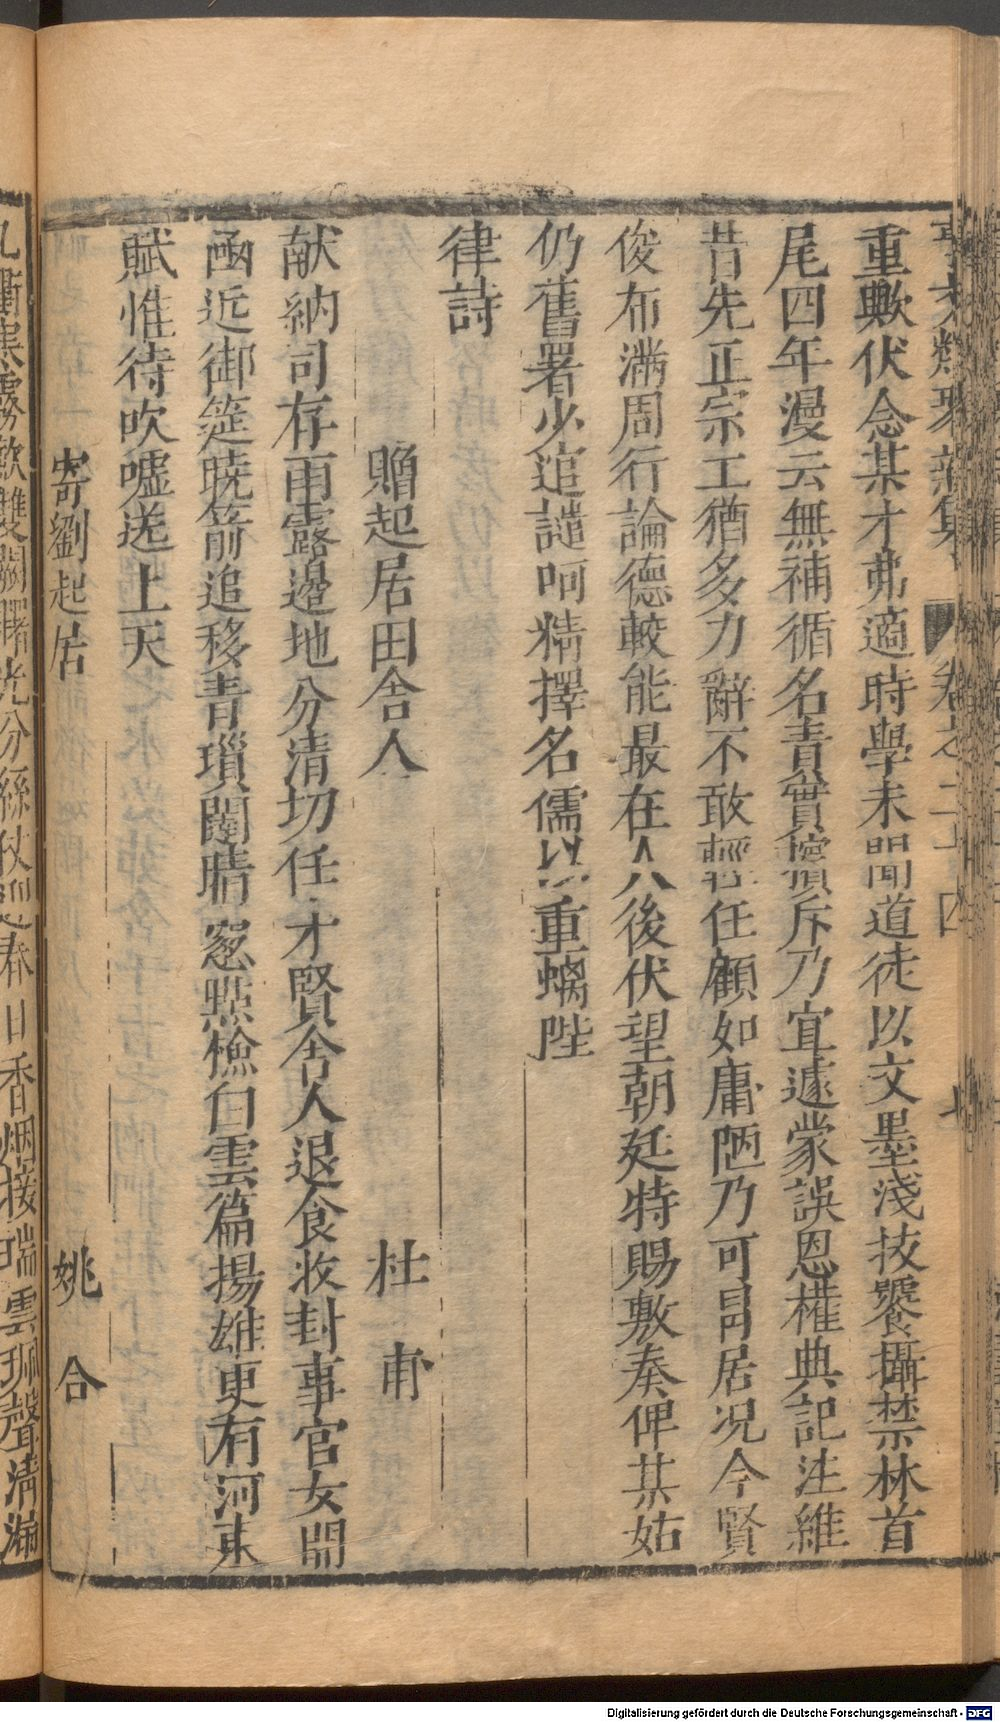 事文類聚新集 卷之二十 四
重歟伏念某才弗適時學未聞道徒以文墨淺技饕攝禁林首
尾四年漫云無補循名責實擯斥乃宜遽蒙誤恩權典記注維
昔先正宗工猶多力辭不敢輕任顧如庸陋乃可冐居况今賢
俊布滿周行論德較能最在人後伏望朝廷特賜敷奏俾某姑
仍舊署少逭譴呵精擇名儒以重螭陛
律詩
贈起居田舍人 杜甫
献納司存雨露邉地分清切任才賢舍人退食收封事官女開
凾近御筵曉箭追移青瑣闥晴窓㸃檢白雲篇揚雄更有河東
賦惟待吹嘘送上天
寄劉起居 姚合
九衢寒霧歛雙闕曙光分綵仗迎春日香烟接瑞雲珮聲清漏
Digitalisierung gefördert durch die Deutsche Forschungsgemeinschaft - DFG